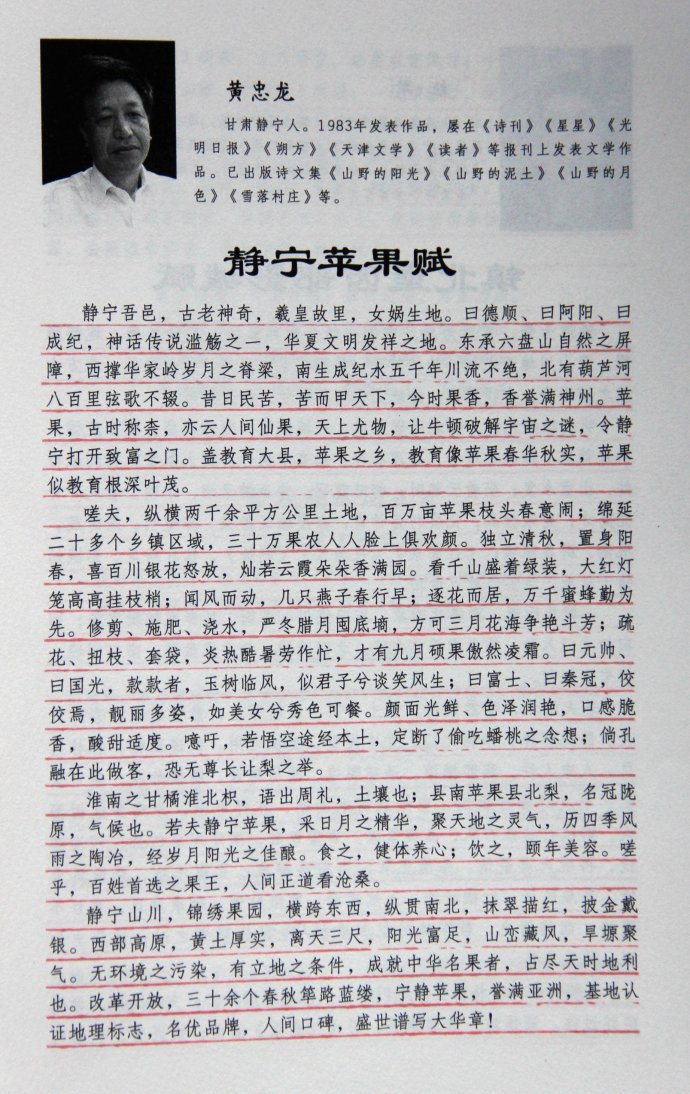 黄忠龙
甘肃静宁人。1983年发表作品，屡在《诗刊》《星星》《光
明日报》《朔方》《天津文学》《读者》等报刊上发表文学作
品。已出版诗文集《山野的阳光》《山野的泥土》《山野的月
色》《雪落村庄》等。
静宁苹果赋
静宁吾邑，古老神奇，羲皇故里，女娲生地。曰德顺、曰阿阳、曰
成纪，神话传说滥觞之一，华夏文明发祥之地。东承六盘山自然之屏
障，西撑华家岭岁月之脊梁，南生成纪水五千年川流不绝，北有葫芦河
八百里弦歌不辍。昔日民苦，苦而甲天下，今时果香，香誉满神州。苹
果，古时称柰，亦云人间仙果，天上尤物，让牛顿破解宇宙之谜，令静
宁打开致富之门。盖教育大县，苹果之乡，教育像苹果春华秋实，苹果
似教育根深叶茂。
嗟夫，纵横两千余平方公里土地，百万亩苹果枝头春意闹；绵延
二十多个乡镇区域，三十万果农人人脸上俱欢颜。独立清秋，置身阳
春，喜百川银花怒放，灿若云霞朵朵香满园。看千山盛着绿装，大红灯
笼高高挂枝梢；闻风而动，几只燕子春行早；逐花而居，万千蜜蜂勤为
先。修剪、施肥、浇水，严冬腊月囤底墒，方可三月花海争艳斗芳；疏
花、扭枝、套袋，炎热酷暑劳作忙，才有九月硕果傲然凌霜。曰元帅、
曰国光，款款者，玉树临风，似君子兮谈笑风生；曰富士、曰秦冠，佼
佼焉，靓丽多姿，如美女兮秀色可餐。颜面光鲜、色泽润艳，口感脆
香，酸甜适度。噫吁，若悟空途经本土，定断了偷吃蟠桃之念想；倘孔
融在此做客，恐无尊长让梨之举。
淮南之甘橘淮北枳，语出周礼，土壤也；县南苹果县北梨，名冠陇
原，气候也。若夫静宁苹果，采日月之精华，聚天地之灵气，历四季风
雨之陶冶，经岁月阳光之佳酿。食之，健体养心；饮之，颐年美容。嗟
乎，百姓首选之果王，人间正道看沧桑。
静宁山川，锦绣果园，横跨东西，纵贯南北，抹翠描红，披金戴
银。西部高原，黄土厚实，离天三尺，阳光富足，山峦藏风，旱塬聚
气。无环境之污染，有立地之条件，成就中华名果者，占尽天时地利
也。改革开放，三十余个春秋筚路蓝缕，宁静苹果，誉满亚洲，基地认
证地理标志，名优品牌，人间口碑，盛世谱写大华章！